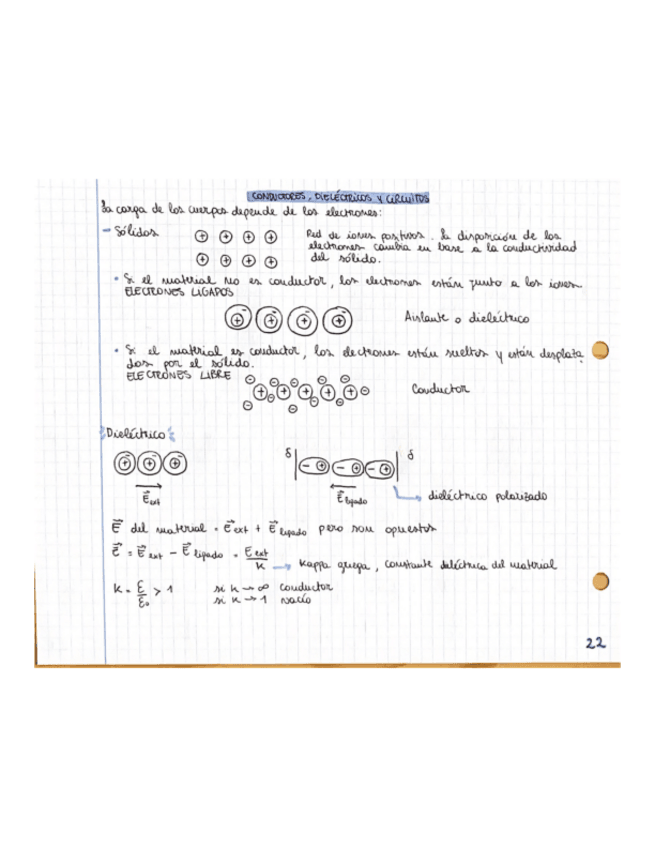 CONDUCTORES, DIELÉCTRICOS Y CIRCUITOS
La carga de los cuerpos depende de los electrones:
- Sólidos
+ + + +
+ + + +
Red de iones positivos. La disposición de los
electrones cambia en base a la conductividad
del sólido.
• Si el material no es conductor, los electrones están junto a los iones
ELECTRONES LIGADOS
Aislante o dieléctrico
• Si el material es conductor, los electrones están sueltos y están desplaza
dos por el sólido.
ELECTRONES LIBRE
Conductor
Dieléctrico
δ δ
E⃗ext
E⃗ligado
dieléctrico polarizado
E⃗ del material = E⃗ext + E⃗ligado pero son opuestos
E⃗ = E⃗ext - E⃗ligado = Eext/K → Kappa griega, constante dieléctrica del material
K = ε/ε₀ > 1 si K → ∞ conductor
si K → 1 vacío
22